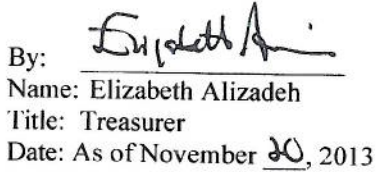 By: Elizabeth A
Name: Elizabeth Alizadeh
Title: Treasurer
Date: As of November 20, 2013